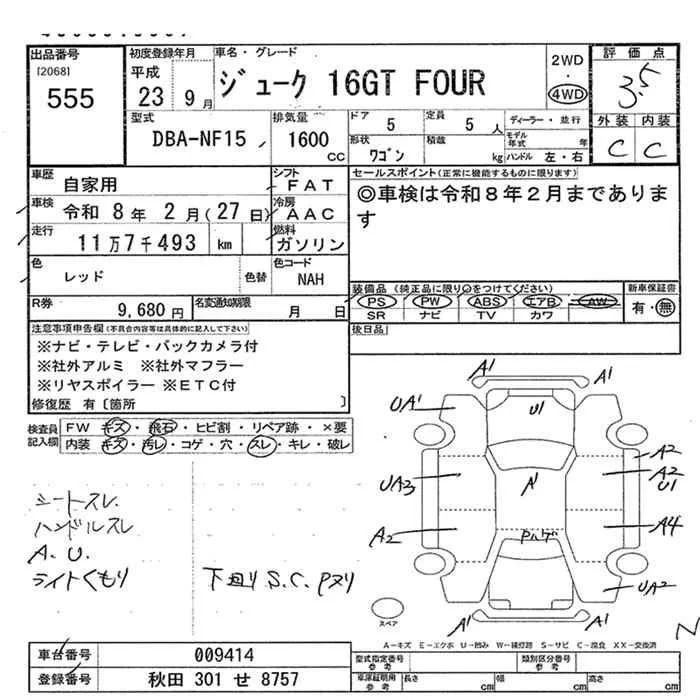 出品番号
[2068]
555
初度登録年月
平成
23 9月
車名・グレード
ジューク 16GT FOUR
2WD
・
4WD
評価点
3.5
外装 内装
C C
型式
DBA-NF15
排気量
1600
CC
ドア
5
定員
5 人
形状
ワゴン
積載
kg
ディーラー・並行
モデル年式 年
ハンドル 左・右
車歴
自家用
シフト
FAT
車検
令和 8年 2月(27日)
冷房
AAC
走行
11万7千493 km
燃料
ガソリン
色
レッド
色替
色コード
NAH
R券
9,680円
名変通知期限
月 日
セールスポイント(正常に機能するものに限ります)
◎車検は令和8年2月まであります
装備品(純正品に限り○をつけてください)
PS PW ABS エアB AW
SR ナビ TV カワ
新車保証書
有・無
後日品
注意事項申告欄(不具合内容等は具体的に記入して下さい)
※ナビ・テレビ・バックカメラ付
※社外アルミ ※社外マフラー
※リヤスポイラー ※ETC付
修復歴 有〔箇所 〕
検査員記入欄
FW キズ・飛石・ヒビ割・リペア跡・×要
内装 キズ・汚レ・コゲ・穴・スレ・キレ・破レ
シートスレ
ハンドルスレ
A. U.
ライトくもり
下回り S.C. Pヌリ
A1 A1
UA1 U1
A2
UA3 A1 A2
U1
A2 Pハゲ A4
UA2
A1 A1
スペア
N
A=キズ E=エクボ U=凹み W=補修跡 S=サビ C=腐食 XX=交換済
車台番号
009414
登録番号
秋田 301 せ 8757
型式指定番号
参考
類別区分番号
参考
車庫証明用
参考
長さ cm
幅 cm
高さ cm